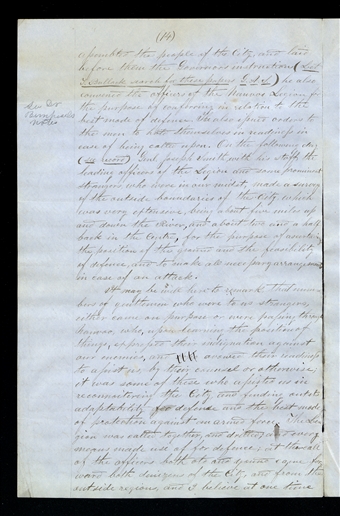 (14)
assembled the people of the City, and laid
before them the Governor's instruction (Let
T. Bullock search for these papers G A S.) he also
convened the officers of the Nauvoo Legion for
the purpose of conferring in relation to the
best mode of defence. He also gave orders to
the men to hold themselves in readiness in
case of being called upon. On the following day
Genl. Joseph Smith, with his staff, the
leading officers of the Legion and some prominent
strangers who were in our midst, made a survey
of the outside boundaries of the City, which
was very extensive, being about five miles up
and down the river, and about two and a half
back in the centre, for the purpose of
the position of the ground and the feasibility
of defence, and to make all necessary arrangements
in case of an attack.
It may be well here to remark that num-
bers of gentlemen who were to us strangers,
either came on purpose or were passing through
Nauvoo, who, upon learning the position of
things, expressed their indignation against
our enemies, and their readiness
to assist us by their counsel or otherwise;
it was some of these who assisted us in
reconnoitering the City, and finding out its
adaptability for defence and the best mode
of protection against an armed force. The Le-
gion was called together, and drilled, and every
means made use of for defence; at the call
of the officers both old and young came for-
ward both denizens of the City, and from the
outside regions, and I believe at one time
See Dr
Bernhisel's
Notes